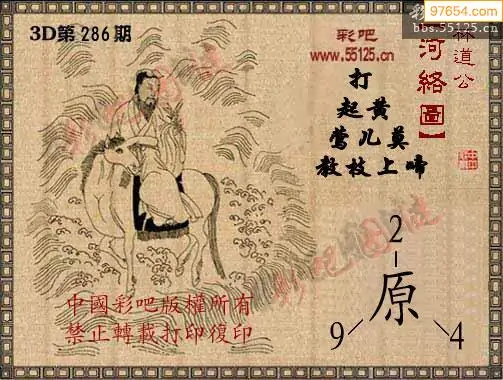 97654.com
bbs.55125.cn
3D第286期
彩吧
www.55125.cn
林道公
【河络圖】
打
起黄
莺儿莫
教枝上啼
2
原
9
4
中國彩吧版權所有
禁止轉載打印復印